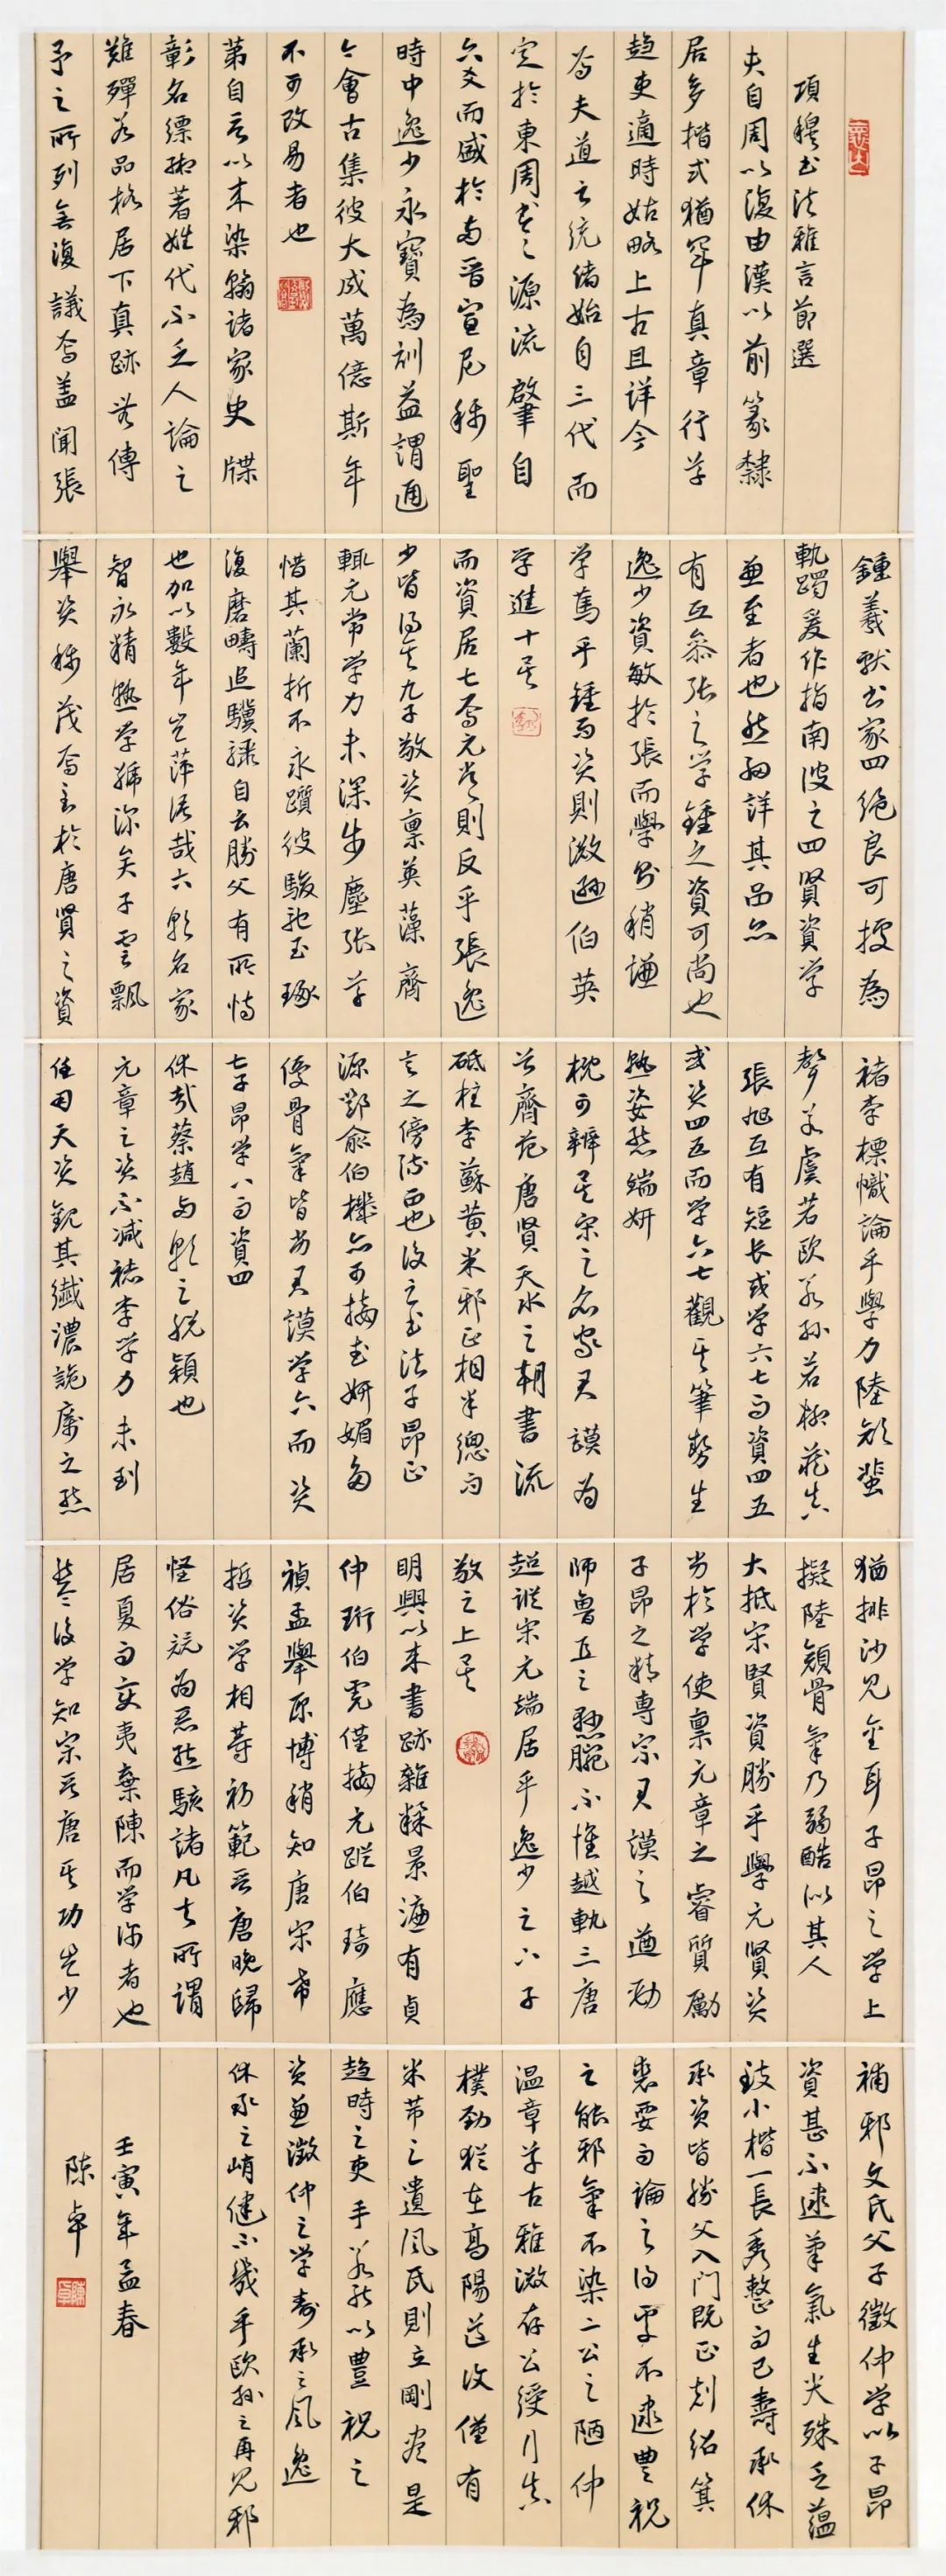 項穆書法雅言節選
夫自周以後由漢以前篆隸
居多楷式猶罕真章行草
趨吏適時姑略上古且詳今
焉夫道之統緒始自三代而
定於東周書之源流肇自
六爻而盛於兩晉宣尼稱聖
時中逸少永寶為訓蓋謂通
今會古集彼大成萬億斯年
不可改易者也
第自書以來染翰諸家史牒
彰名縹緗著姓代不乏人論之
難殫若品格居下真跡無傳
予之所列無復議焉蓋聞張
鍾羲獻書家四絕良可據為
軌躅爰作指南彼之四賢資學
兼至者也然細詳其品亦
有互差張之學鍾之資可尚也
逸少資敏於張而學則稍謙
學篤乎鍾而資則微遜伯英
學進十矣
而資居七焉元常則反乎張逸
少皆得其九子敬資稟英藻齊
轍元常學力未深步塵張草
惜其蘭折不永躓彼駿馳玉琢
復磨疇追驥騄自云勝父有所恃
也加以數年豈萍浯哉六朝名家
智永精熟學號深矣子雲飄
舉資稱茂焉至於唐賢之資
褚李標幟論乎學力陸顏蜚
聲若虞若歐若孫若柳藏真
張旭互有短長或學六七而資四五
或資四五而學六七觀其筆勢生
熟姿態端妍
概可辨矣宋之名家君謨為
首齊范唐賢天水之朝書流
砥柱李蘇黃米邪正相半總而
言之傍流品也後之書法子昂正
源鄧俞伯機亦可接武妍媚多
優骨氣皆劣君謨學六而資
七子昂學八而資四
休哉蔡趙兩朝之脫穎也
元章之資不減褚李學力未到
任用天資觀其纖濃詭厲之態
猶排沙見金耳子昂之學上
擬陸顏骨氣乃弱酷似其人
大抵宋賢資勝乎學元賢資
劣於學使稟元章之睿質勵
子昂之精專宗君謨之遒勁
師魯直之懸腕不惟越軌三唐
超蹤宋元端居乎逸少之下子
敬之上矣
明興以來書跡雜糅景濂有貞
仲珩伯虎僅接元蹤伯琦應
禎孟舉原博稍知唐宋希
哲資學相等初範晉唐晚歸
怪俗競為惡態駭諸凡夫所謂
居夏而變夷棄陳而學許者也
然後學知宗晉唐其功豈少
補邪文氏父子徵仲學以子昂
資甚不逮筆氣生尖殊乏蘊
致小楷一長秀整而已壽承休
承資皆勝父入門既正克紹箕
裘要而論之得處不逮豐祝
之能邪氣不染二公之陋仲
溫章草古雅微存公綬行真
樸勁猶在高陽道復僅有
米芾之遺風民則立剛盡是
趨時之吏手若能以豐祝之
資兼徵仲之學壽承之風逸
休承之峭健不幾乎歐孫之再見邪
壬寅年孟春
陳卓